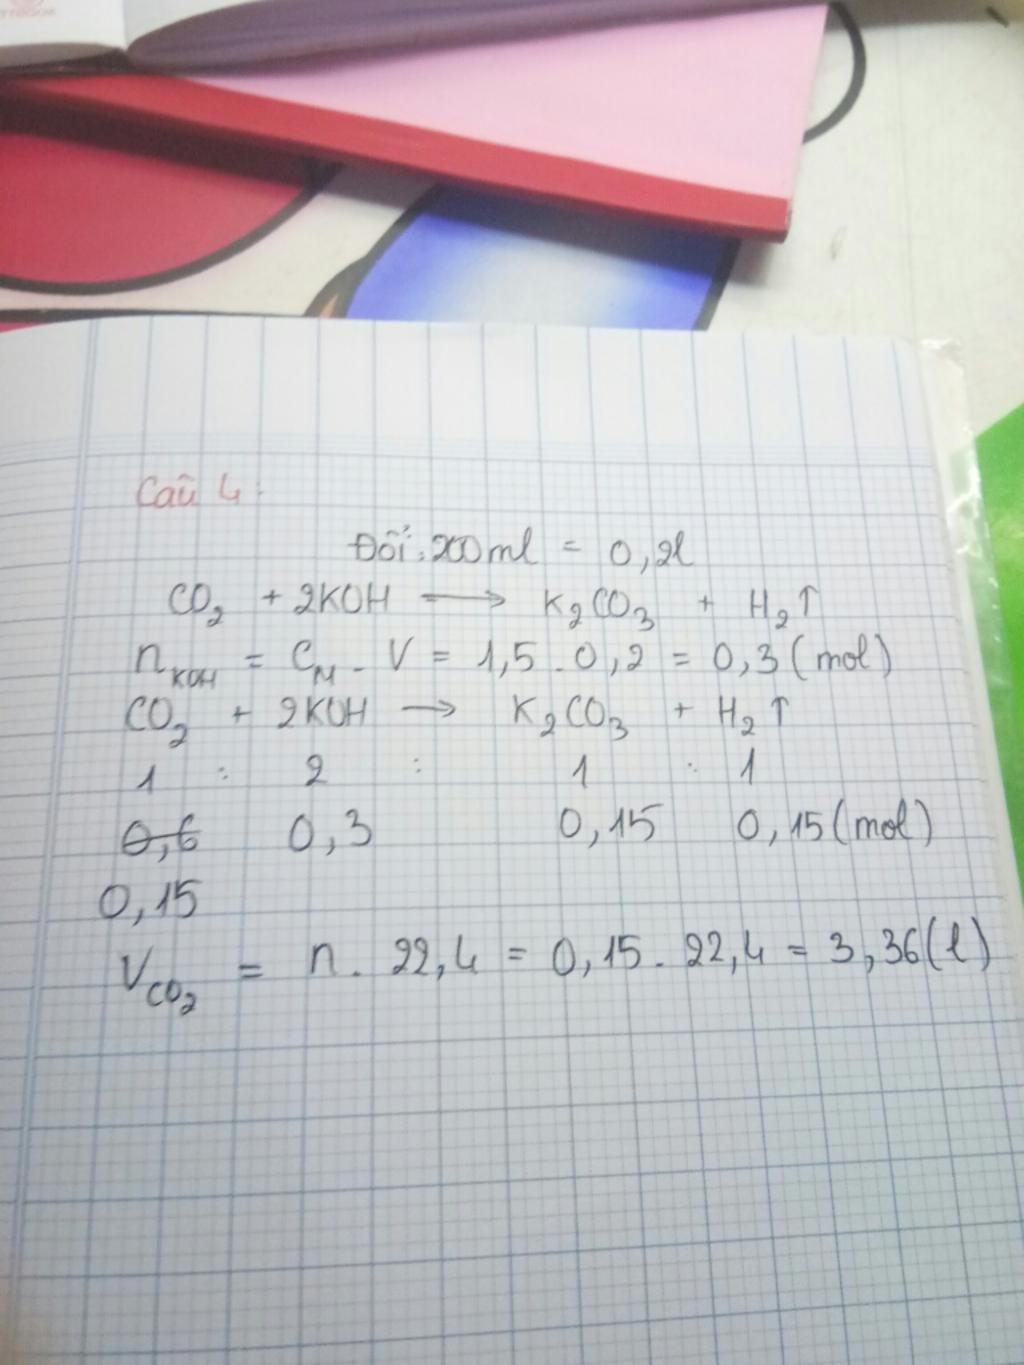 Câu 4:
Đổi: 200ml = 0,2l
CO₂ + 2KOH ⟶ K₂CO₃ + H₂↑
n_KOH = C_M . V = 1,5 . 0,2 = 0,3 (mol)
CO₂ + 2KOH → K₂CO₃ + H₂↑
1 : 2 : 1 : 1
0,6 0,3 0,15 0,15 (mol)
0,15
V_CO₂ = n . 22,4 = 0,15 . 22,4 = 3,36 (l)